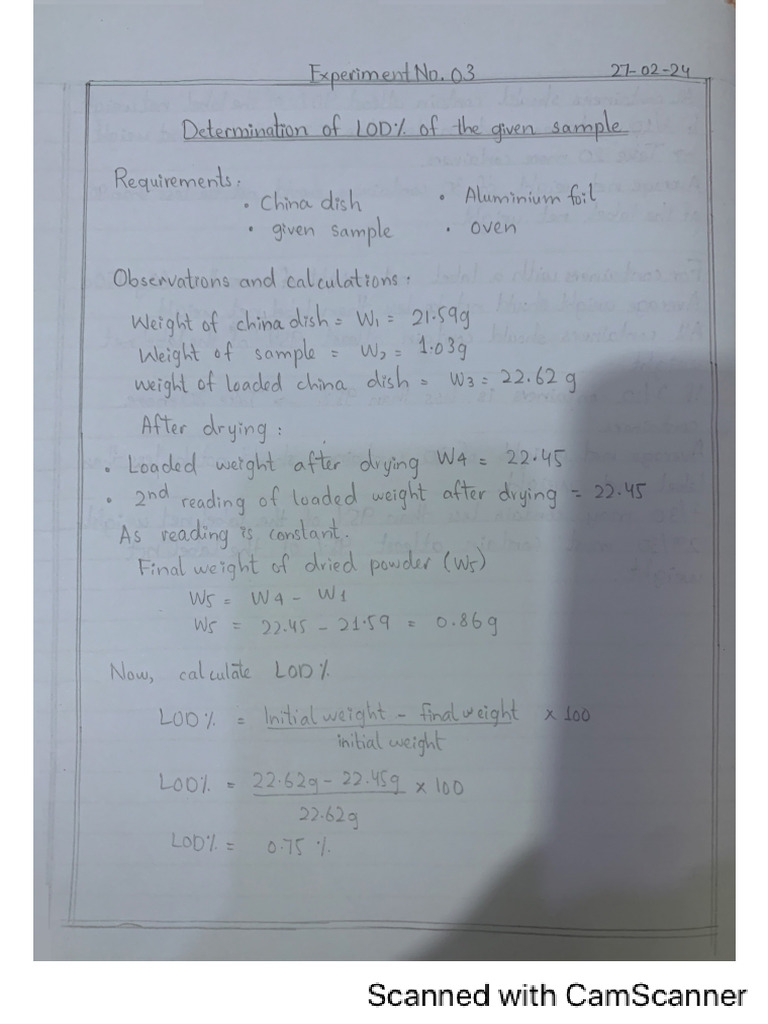 Experiment No. 03 27-02-24
Determination of LOD% of the given sample
Requirements:
• China dish • Aluminium foil
• given sample • oven
Observations and calculations:
Weight of china dish = W1 = 21.59g
Weight of sample = W2 = 1.03g
weight of loaded china dish = W3 = 22.62 g
After drying:
• Loaded weight after drying W4 = 22.45
• 2nd reading of loaded weight after drying = 22.45
As reading is constant.
Final weight of dried powder (W5)
W5 = W4 - W1
W5 = 22.45 - 21.59 = 0.86g
Now, calculate LOD%
LOD% = Initial weight - final weight x 100
initial weight
LOD% = 22.62g - 22.45g x 100
22.62g
LOD% = 0.75 %
Scanned with CamScanner